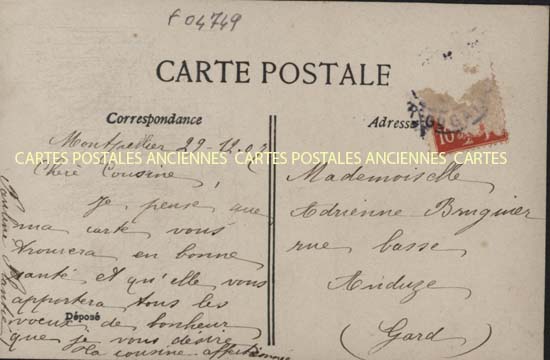 F04749
CARTE POSTALE
Correspondance
Adresse
Montpellier 29-12-07
CARTES POSTALES ANCIENNES CARTES POSTALES ANCIENNES CARTES
Chère Cousine,
Je pense que
ma carte vous
trouvera en bonne
santé et qu'elle vous
apportera tous les
Déposé
voeux de bonheur
que je vous désire
Ta cousine affectionnée
Pauline
Mademoiselle
Adrienne Bruguier
rue basse
Anduze
(Gard)
10